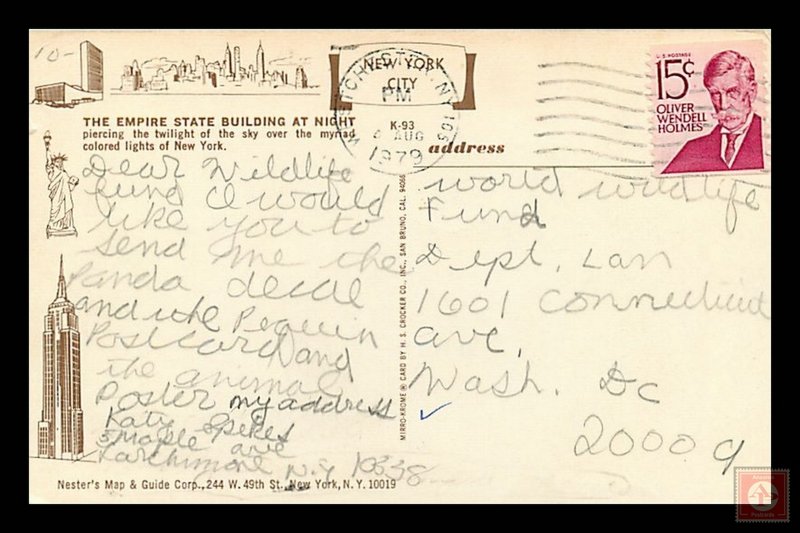 10-
NEW YORK
CITY
WESTCHESTER, NY 105
PM
AUG
1979
U.S. POSTAGE
15¢
OLIVER
WENDELL
HOLMES
THE EMPIRE STATE BUILDING AT NIGHT
piercing the twilight of the sky over the myriad
colored lights of New York.
K-93
address
Dear Wildlife
fund I would
like you to
send me the
Panda decal
and the Peguin
Postcard and
the animal
Poster my address
Katy Spikes
5 Maple ave
Larchmont N.Y 10538
world wildlife
Fund
Dept. Lan
1601 Connecticut
ave,
Wash. Dc
20009
MIRRO-KROME ® CARD BY H. S. CROCKER CO., INC., SAN BRUNO, CAL. 94066
Nester's Map & Guide Corp., 244 W. 49th St. New York, N. Y. 10019